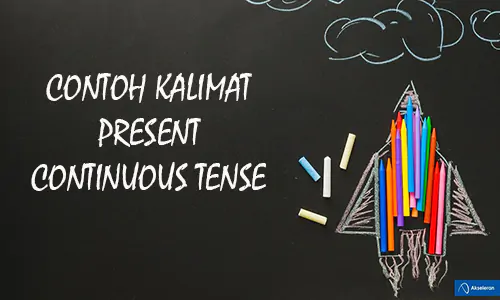 CONTOH KALIMAT
PRESENT
CONTINUOUS TENSE
Akseleran